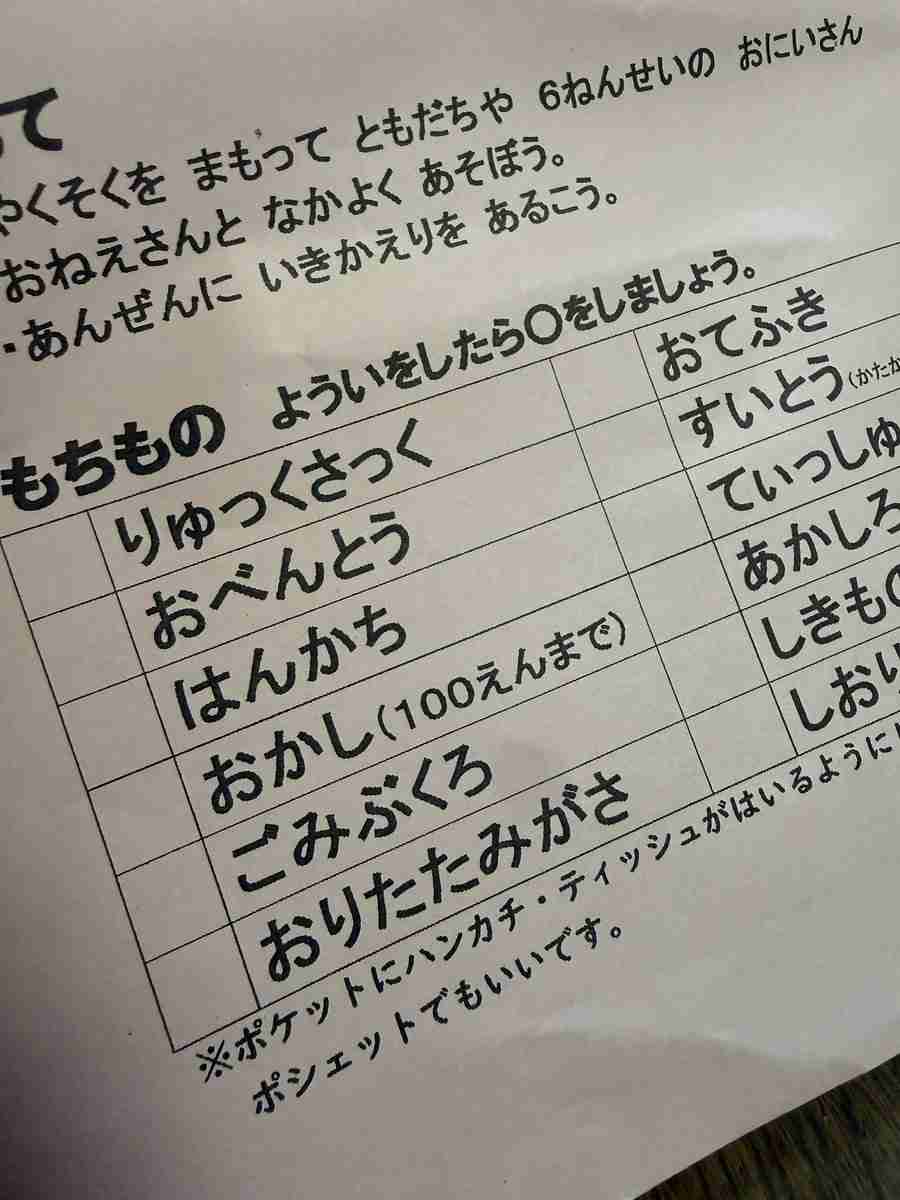 って
やくそくを まもって ともだちや 6ねんせいの おにいさん
おねえさんと なかよく あそぼう。
・あんぜんに いきかえりを あるこう。
もちもの よういをしたら〇をしましょう。
りゅっくさっく おてふき
おべんとう すいとう(かたか
はんかち てぃっしゅ
おかし(100えんまで) あかしろ
ごみぶくろ しきもの
おりたたみがさ しおり
※ポケットにハンカチ・ティッシュがはいるように
ポシェットでもいいです。